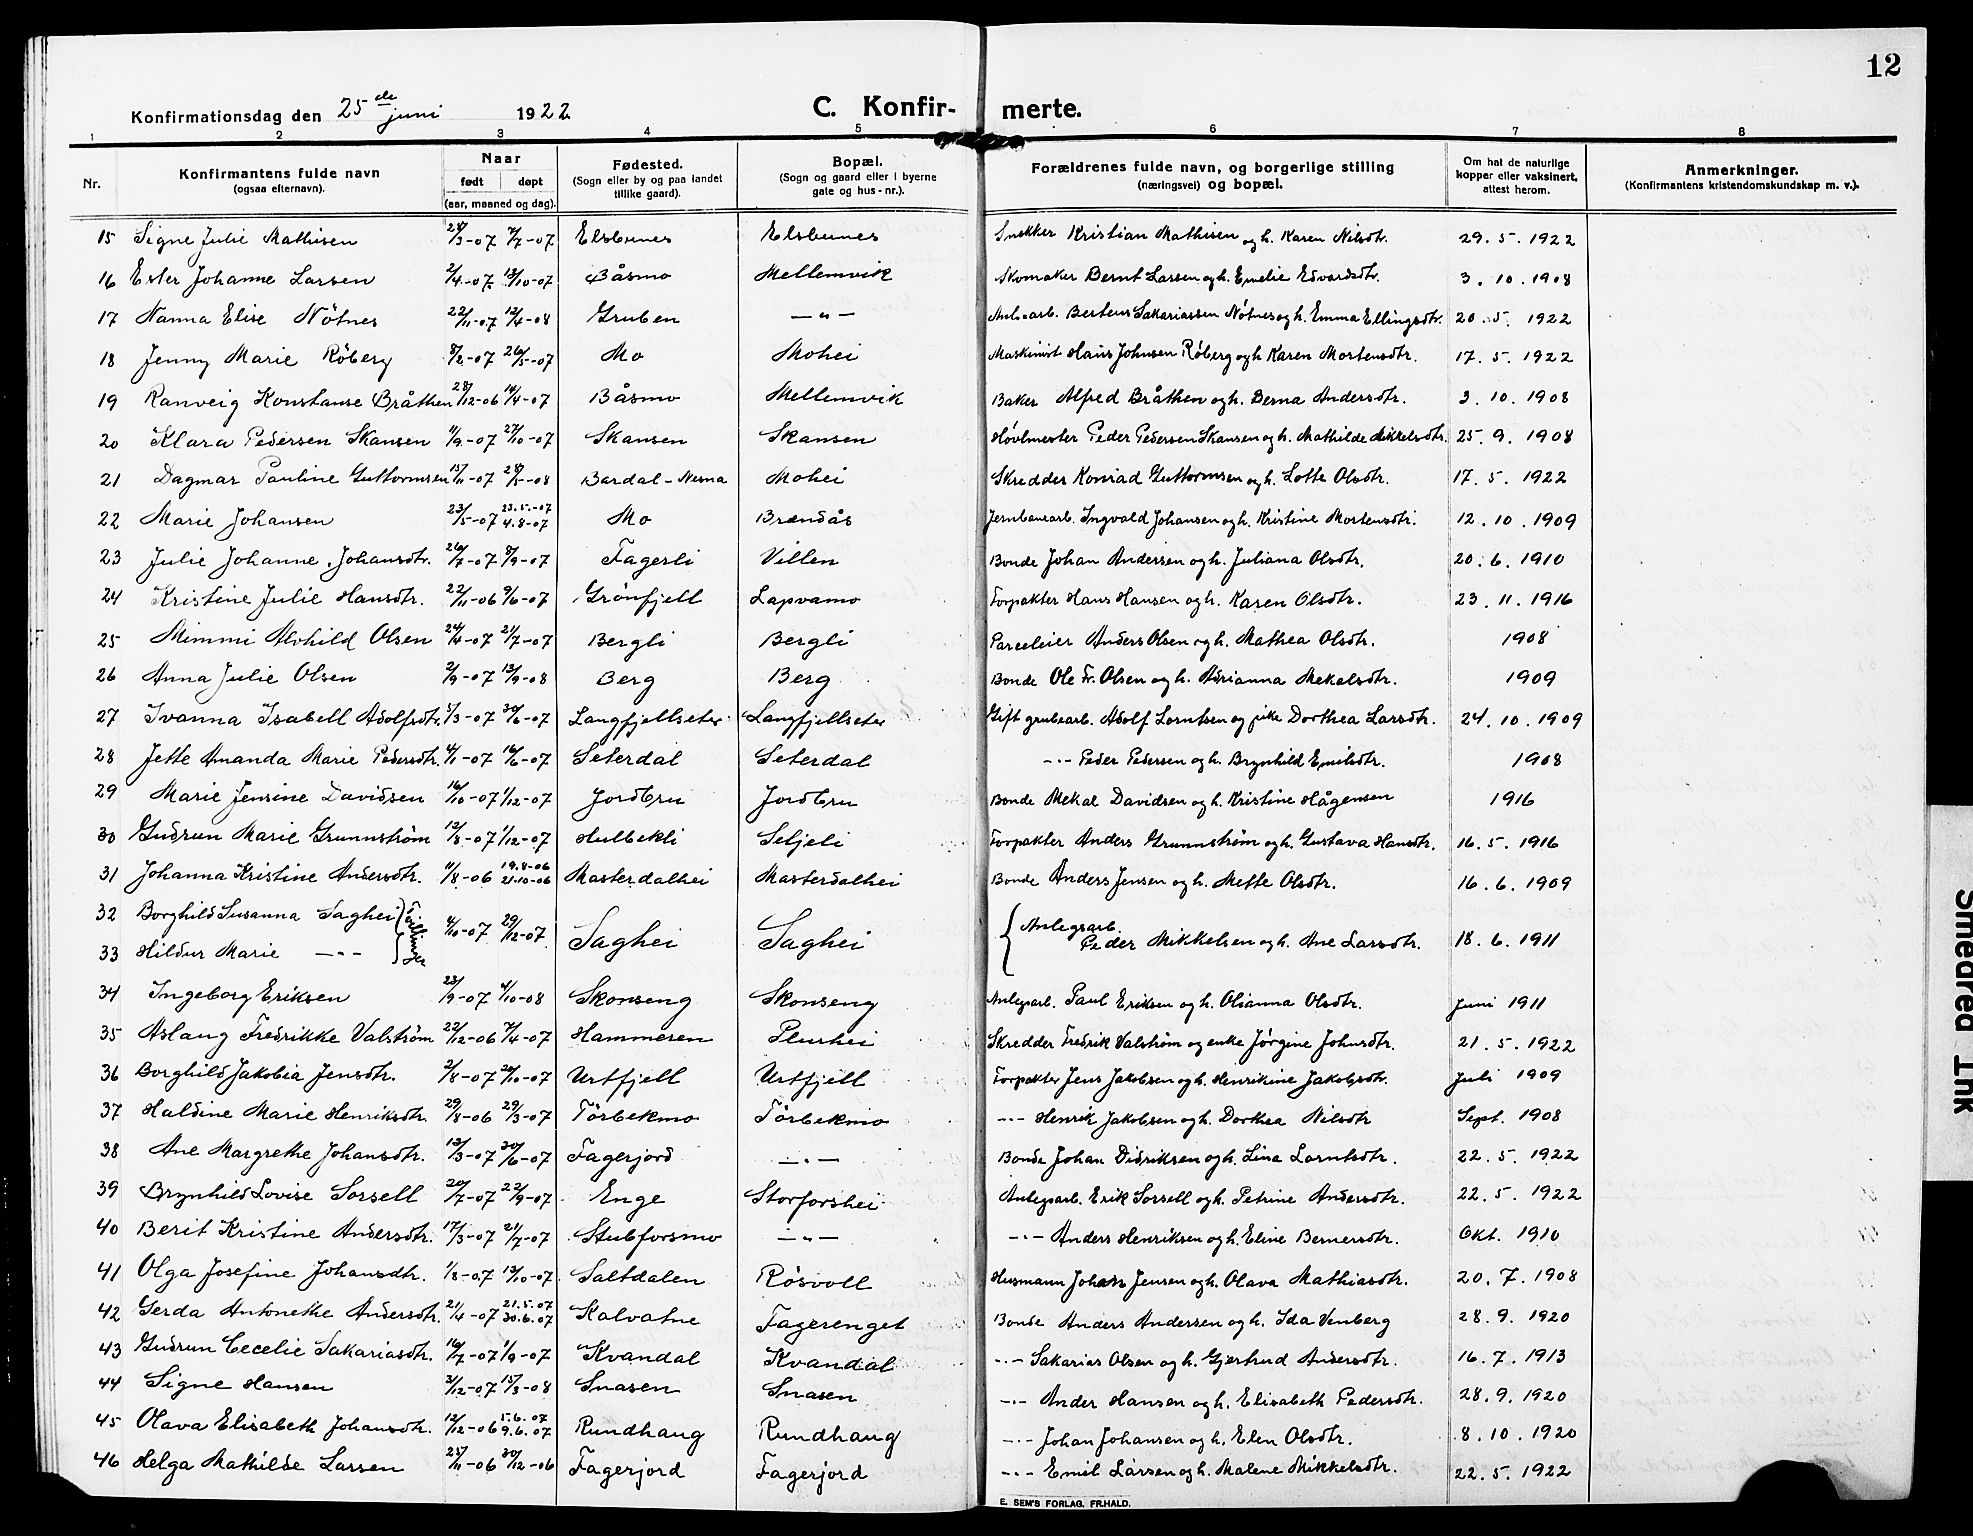 12
Konfirmationsdag den 25de juni 1922
C. Konfir- merte.
1 2 3 4 5 6 7 8
Nr.
Konfirmantens fulde navn
(ogsaa efternavn).
Naar
født døpt
(aar, maaned og dag).
Fødested.
(Sogn eller by og paa landet
tillike gaard).
Bopæl.
(Sogn og gaard eller i byerne
gate og hus-nr.).
Forældrenes fulde navn, og borgerlige stilling
(næringsvei) og bopæl.
Om hat de naturlige
kopper eller vaksinert,
attest herom.
Anmerkninger.
(Konfirmantens kristendomskundskap m. v.).
15 Signe Julie Mathisen 24/3-07 7/7-07 Elsbunes Elsbunes Snekker Kristian Mathisen og h. Karen Nilsdtr. 29.5.1922
16 Ester Johanne Larsen 2/4-07 13/10-07 Båsmo Mellemvik Skomaker Bernt Larsen og h. Emelie Edvardsdtr. 3.10.1908
17 Nanna Elise Nötnes 22/11-07 12/4-08 Gruben —"— Anl.arb. Bertens Sakariassen Nötnes og h. Emma Ellingsdtr. 20.5.1922
18 Jenny Marie Röberg 8/2-07 26/5-07 Mo Mohei Maskinist Hans Johnsen Röberg og h. Karen Mortensdtr. 17.5.1922
19 Ranveig Konstanse Bråthen 28/12-06 14/4-07 Båsmo Mellemvik Baker Alfred Bråthen og h. Berna Andersdtr. 3.10.1908
20 Klara Pedersen Skansen 11/9-07 27/10-07 Skansen Skansen Hövlmester Peder Pedersen Skansen og h. Mathilde Mikkelsdtr. 25.9.1908
21 Dagmar Pauline Guttormsen 15/11-07 24/5-08 Bardal-Nesna Mohei Skredder Konrad Guttormsen og h. Lotte Olsdtr. 17.5.1922
22 Marie Johansen 23/5-07 23.5.-07 4.8-07 Mo Brændås Jernbanearb. Ingvald Johansen og h. Kristine Mortensdtr. 12.10.1909
23 Julie Johanne Johansdtr. 26/7-07 8/9-07 Fagerli Villen Bonde Johan Andersen og h. Juliana Olsdtr. 20.6.1910
24 Kristine Julie Hansdtr. 22/11-06 9/6-07 Grönfjell Lapvamo Forpakter Hans Hansen og h. Karen Olsdtr. 23.11.1916
25 Mimmi Alvhild Olsen 24/4-07 21/7-07 Bergli Bergli Parceleier Anders Olsen og h. Mathea Olsdtr. 1908
26 Anna Julie Olsen 2/9-07 13/9-08 Berg Berg Bonde Ole Fr. Olsen og h. Adrianna Mekalsdtr. 1909
27 Ivanna Isabell Adolfsdtr. 5/3-07 30/6-07 Langfjellseter Langfjellseter Gift grubearb. Adolf Lorntsen og pike Dorthea Larsdtr. 24.10.1909
28 Jette Amanda Marie Pedersdtr. 4/1-07 16/6-07 Seterdal Seterdal —"— Peder Pedersen og h. Brynhild Emilsdtr. 1908
29 Marie Jensine Davidsen 16/10-07 1/12-07 Jordbru Jordbru Bonde Mekal Davidsen og h. Kristine Hågensen 1916
30 Gudrun Marie Grunnström 12/8-07 1/12-07 Hulbekli Seljeli Forpakter Anders Grunnström og h. Gustava Hansdtr. 16.5.1916
31 Johanna Kristine Andersdtr. 11/8-06 19.8-06 21-10-06 Masterdalhei Masterdalhei Bonde Anders Jensen og h. Mette Olsdtr. 16.6.1909
32 Borghild Susanna Saghei } Tvillinger 4/10-07 29/12-07 Saghei Saghei { Anlegsarb. Peder Mikkelsen og h. Ane Larsdtr. 18.6.1911
33 Hildur Marie —"—
34 Ingeborg Eriksen 23/9-07 4/10-08 Skonseng Skonseng Anlegsarb. Paul Eriksen og h. Olianna Olsdtr. Juni 1911
35 Aslaug Fredrikke Valström 22/12-06 7/4-07 Hammeren Plurhei Skredder Fredrik Valström og enke Jörgine Johnsdtr. 21.5.1922
36 Borghild Jakobia Jensdtr. 2/8-07 20/10-07 Urtfjell Urtfjell Forpakter Jens Jakobsen og h. Henrikine Jakobsdtr. Juli 1909
37 Haldine Marie Henriksdtr. 29/8-06 29/3-07 Törbekmo Törbekmo —"— Henrik Jakobsen og h. Dorthea Nilsdtr Sept. 1908
38 Ane Margrethe Johansdtr. 13/3-07 30/6-07 Fagerjord —"— Bonde Johan Didriksen og h. Lina Lorntsdtr. 22.5.1922
39 Brynhild Lovise Sorsell 20/7-07 22/9-07 Enge Storforshei Anlegsarb. Erik Sorsell og h. Petrine Andersdtr. 22.5.1922
40 Berit Kristine Andersdtr. 17/3-07 21/7-07 Stubforsmo —"— —"— Anders Henriksen og h. Eline Bernersdtr. Okt. 1910
41 Olga Josefine Johansdtr. 1/8-07 13/10-07 Saltdalen Rösvoll Husmann Johan Jensen og h. Olava Mathiasdtr. 20.7.1908
42 Gerda Antonethe Andersdtr. 21/4-07 21.5.07 30.6.07 Kalvatne Fagerenget Bonde Anders Andersen og h. Ida Venberg 28.9.1920
43 Gudrun Cecelie Sakariasdtr. 16/7-07 1/9-07 Kvandal Kvandal —"— Sakarias Olsen og h. Gjertrud Andersdtr. 16.7.1913
44 Signe Hansen 31/12-07 15/3-08 Snasen Snasen —"— Ander Hansen og h. Elisabeth Pedersdtr. 28.9.1920
45 Olava Elisabeth Johansdtr. 12/12-06 5.6.07 9.6.07 Rundhaug Rundhaug —"— Johan Johansen og h. Elen Olsdtr. 8.10.1920
46 Helga Mathilde Larsen 25/11-06 30/12-06 Fagerjord Fagerjord —"— Emil Larsen og h. Malene Mikkelsdtr. 22.5.1922
E. SEM'S FORLAG, FR.HALD.
Smedred Ink